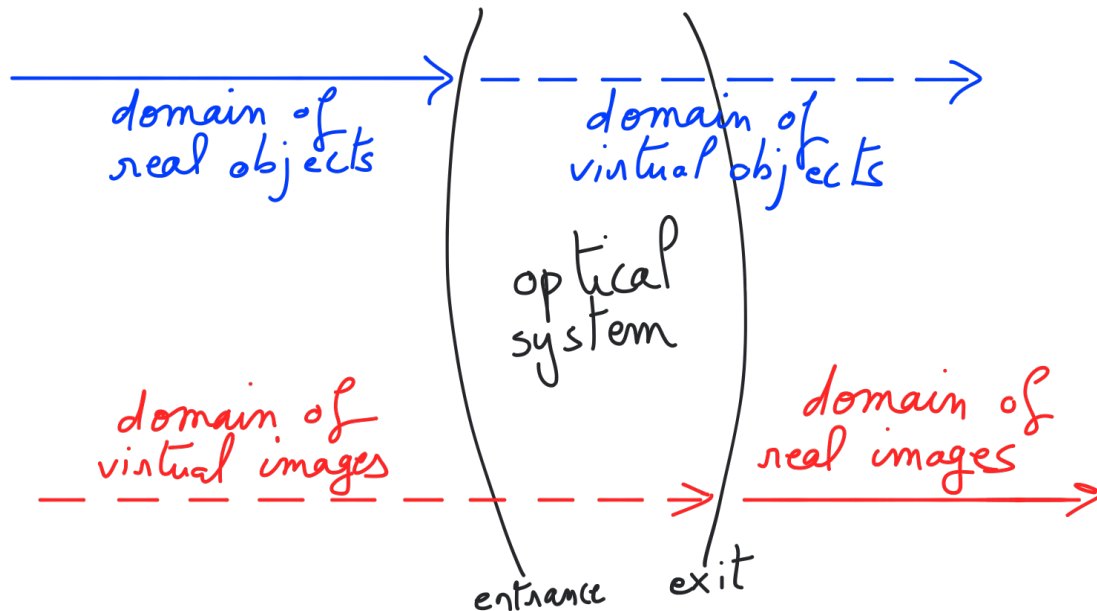 domain of
real objects
domain of
virtual objects
optical
system
domain of
virtual images
domain of
real images
entrance
exit